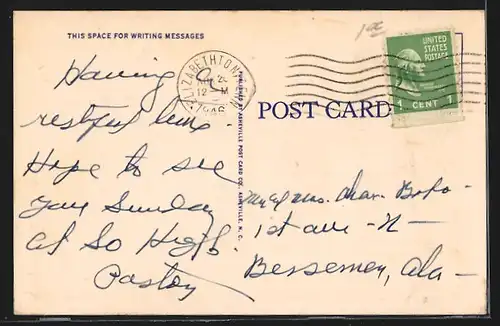 THIS SPACE FOR WRITING MESSAGES
ELIZABETHTON
12 M
1946
UNITED
STATES
POSTAGE
1 CENT 1
POST CARD
PUBLISHED BY ASHEVILLE POST CARD CO., ASHEVILLE, N. C.
Having a
restful time.
Hope to see
you Sunday
at So High
Pastor
Mr & Mrs. Chas.
1st ave - N -
Bessemer, Ala -